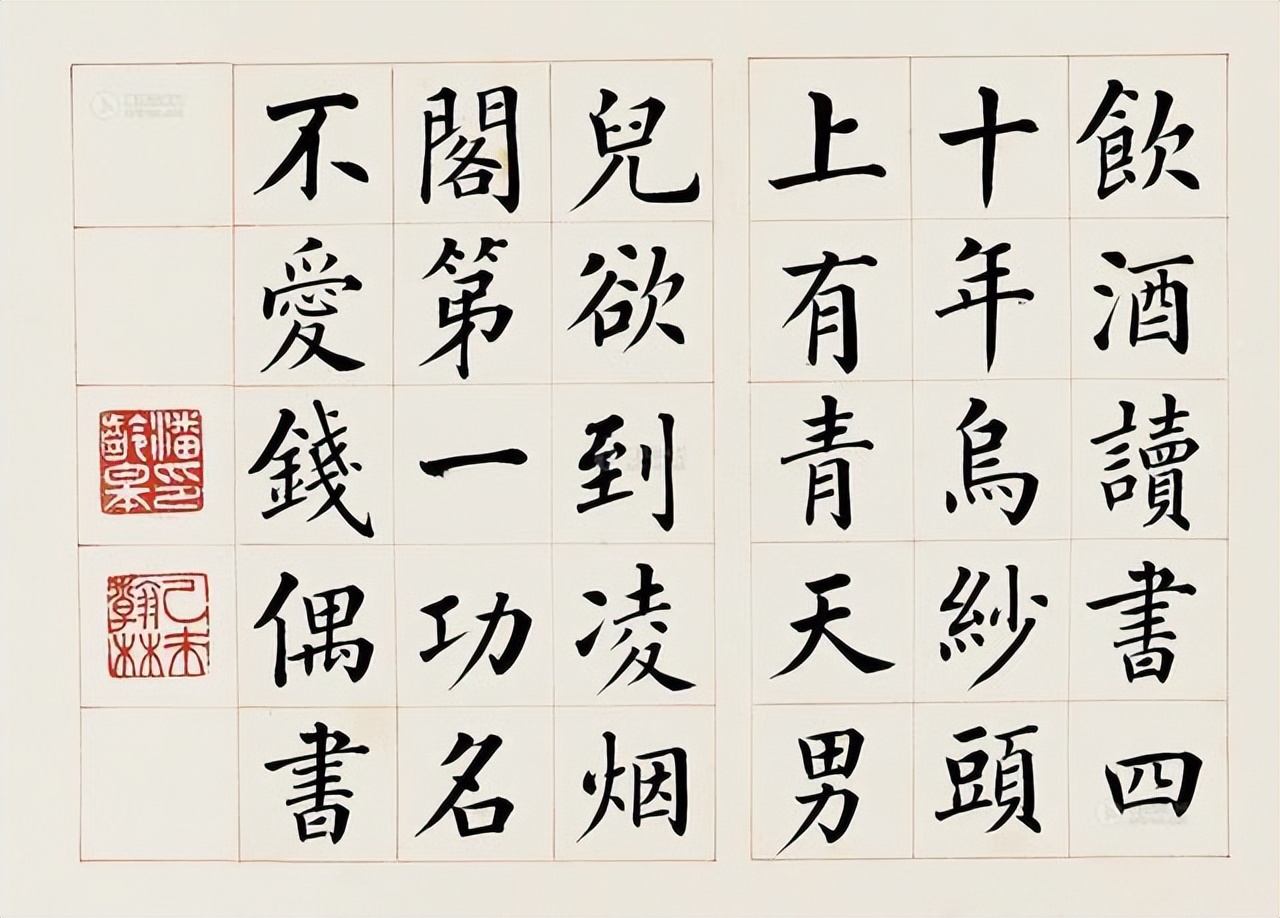 飲酒讀書四
十年烏紗頭
上有青天男
兒欲到凌烟
閣第一功名
不愛錢偶書
潘齡皋印
乙未翰林